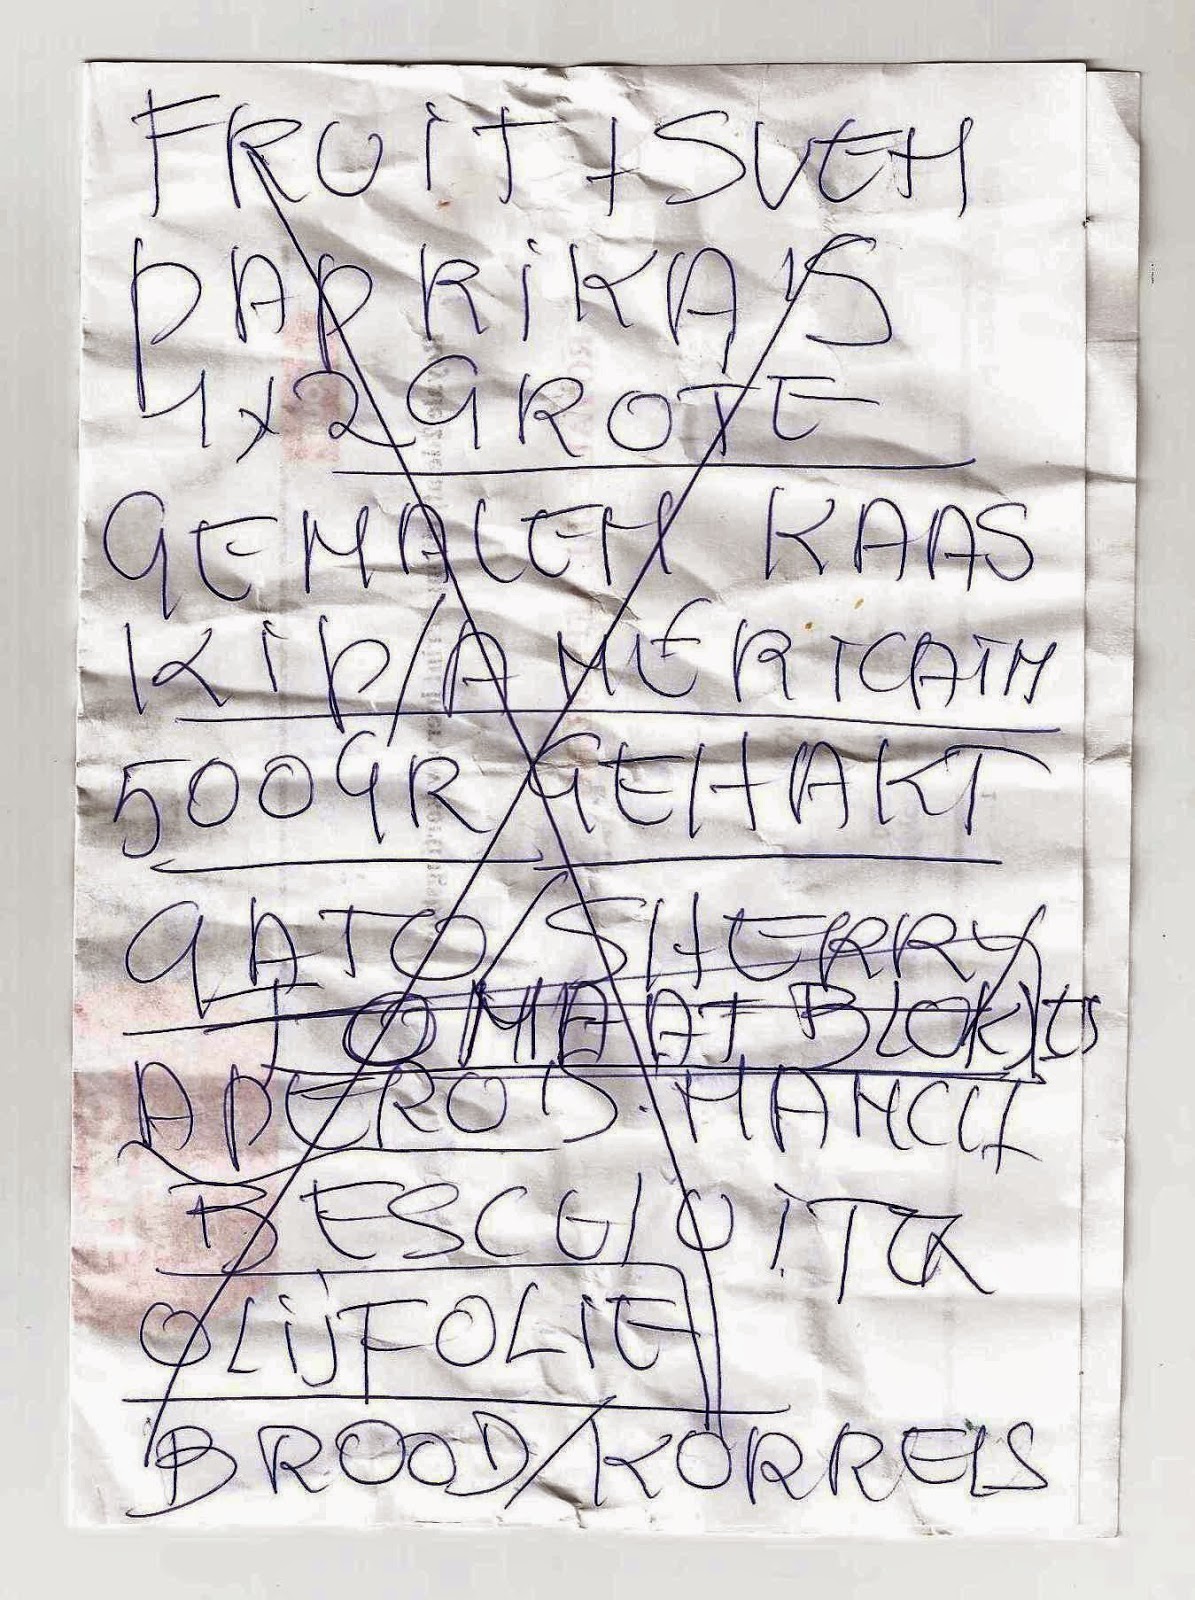 FRUIT + SVEM
PAPRIKA'S
4x2 GROTE
GEMALEN KAAS
KIP/AMERICAIN
500GR GEHAKT
GATO/SHERRY
TOMAAT BLOKJES
APEROS.
OLIJFOLIE
BROOD/KORRELS